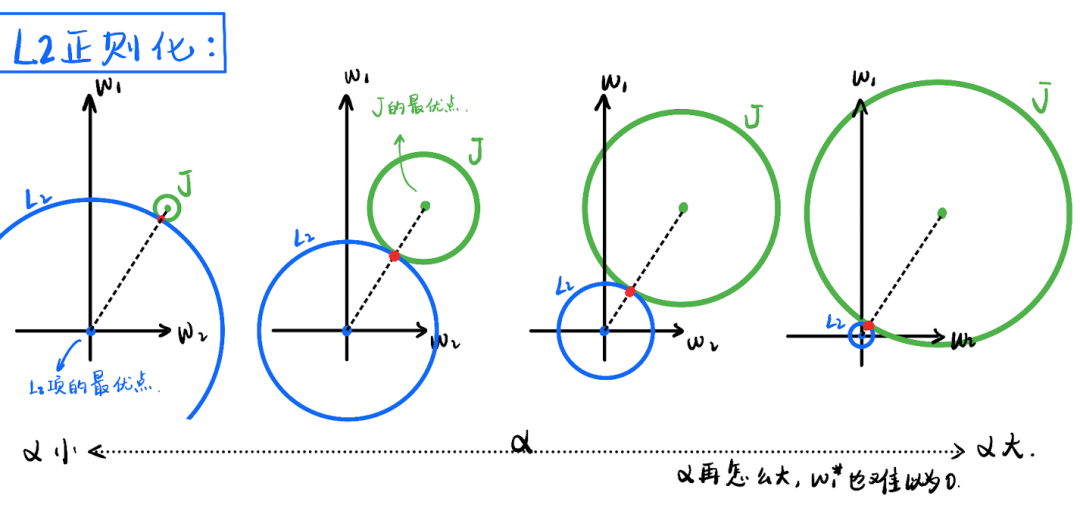 L2正则化:
w₁
L₂
J
w₂
L₂项的最优点.
w₁
J的最优点.
J
L₂
w₂
w₁
J
L₂
w₂
w₁
J
L₂
w₂
α小
α
α大.
α再怎么大, w₁*也难以为0.